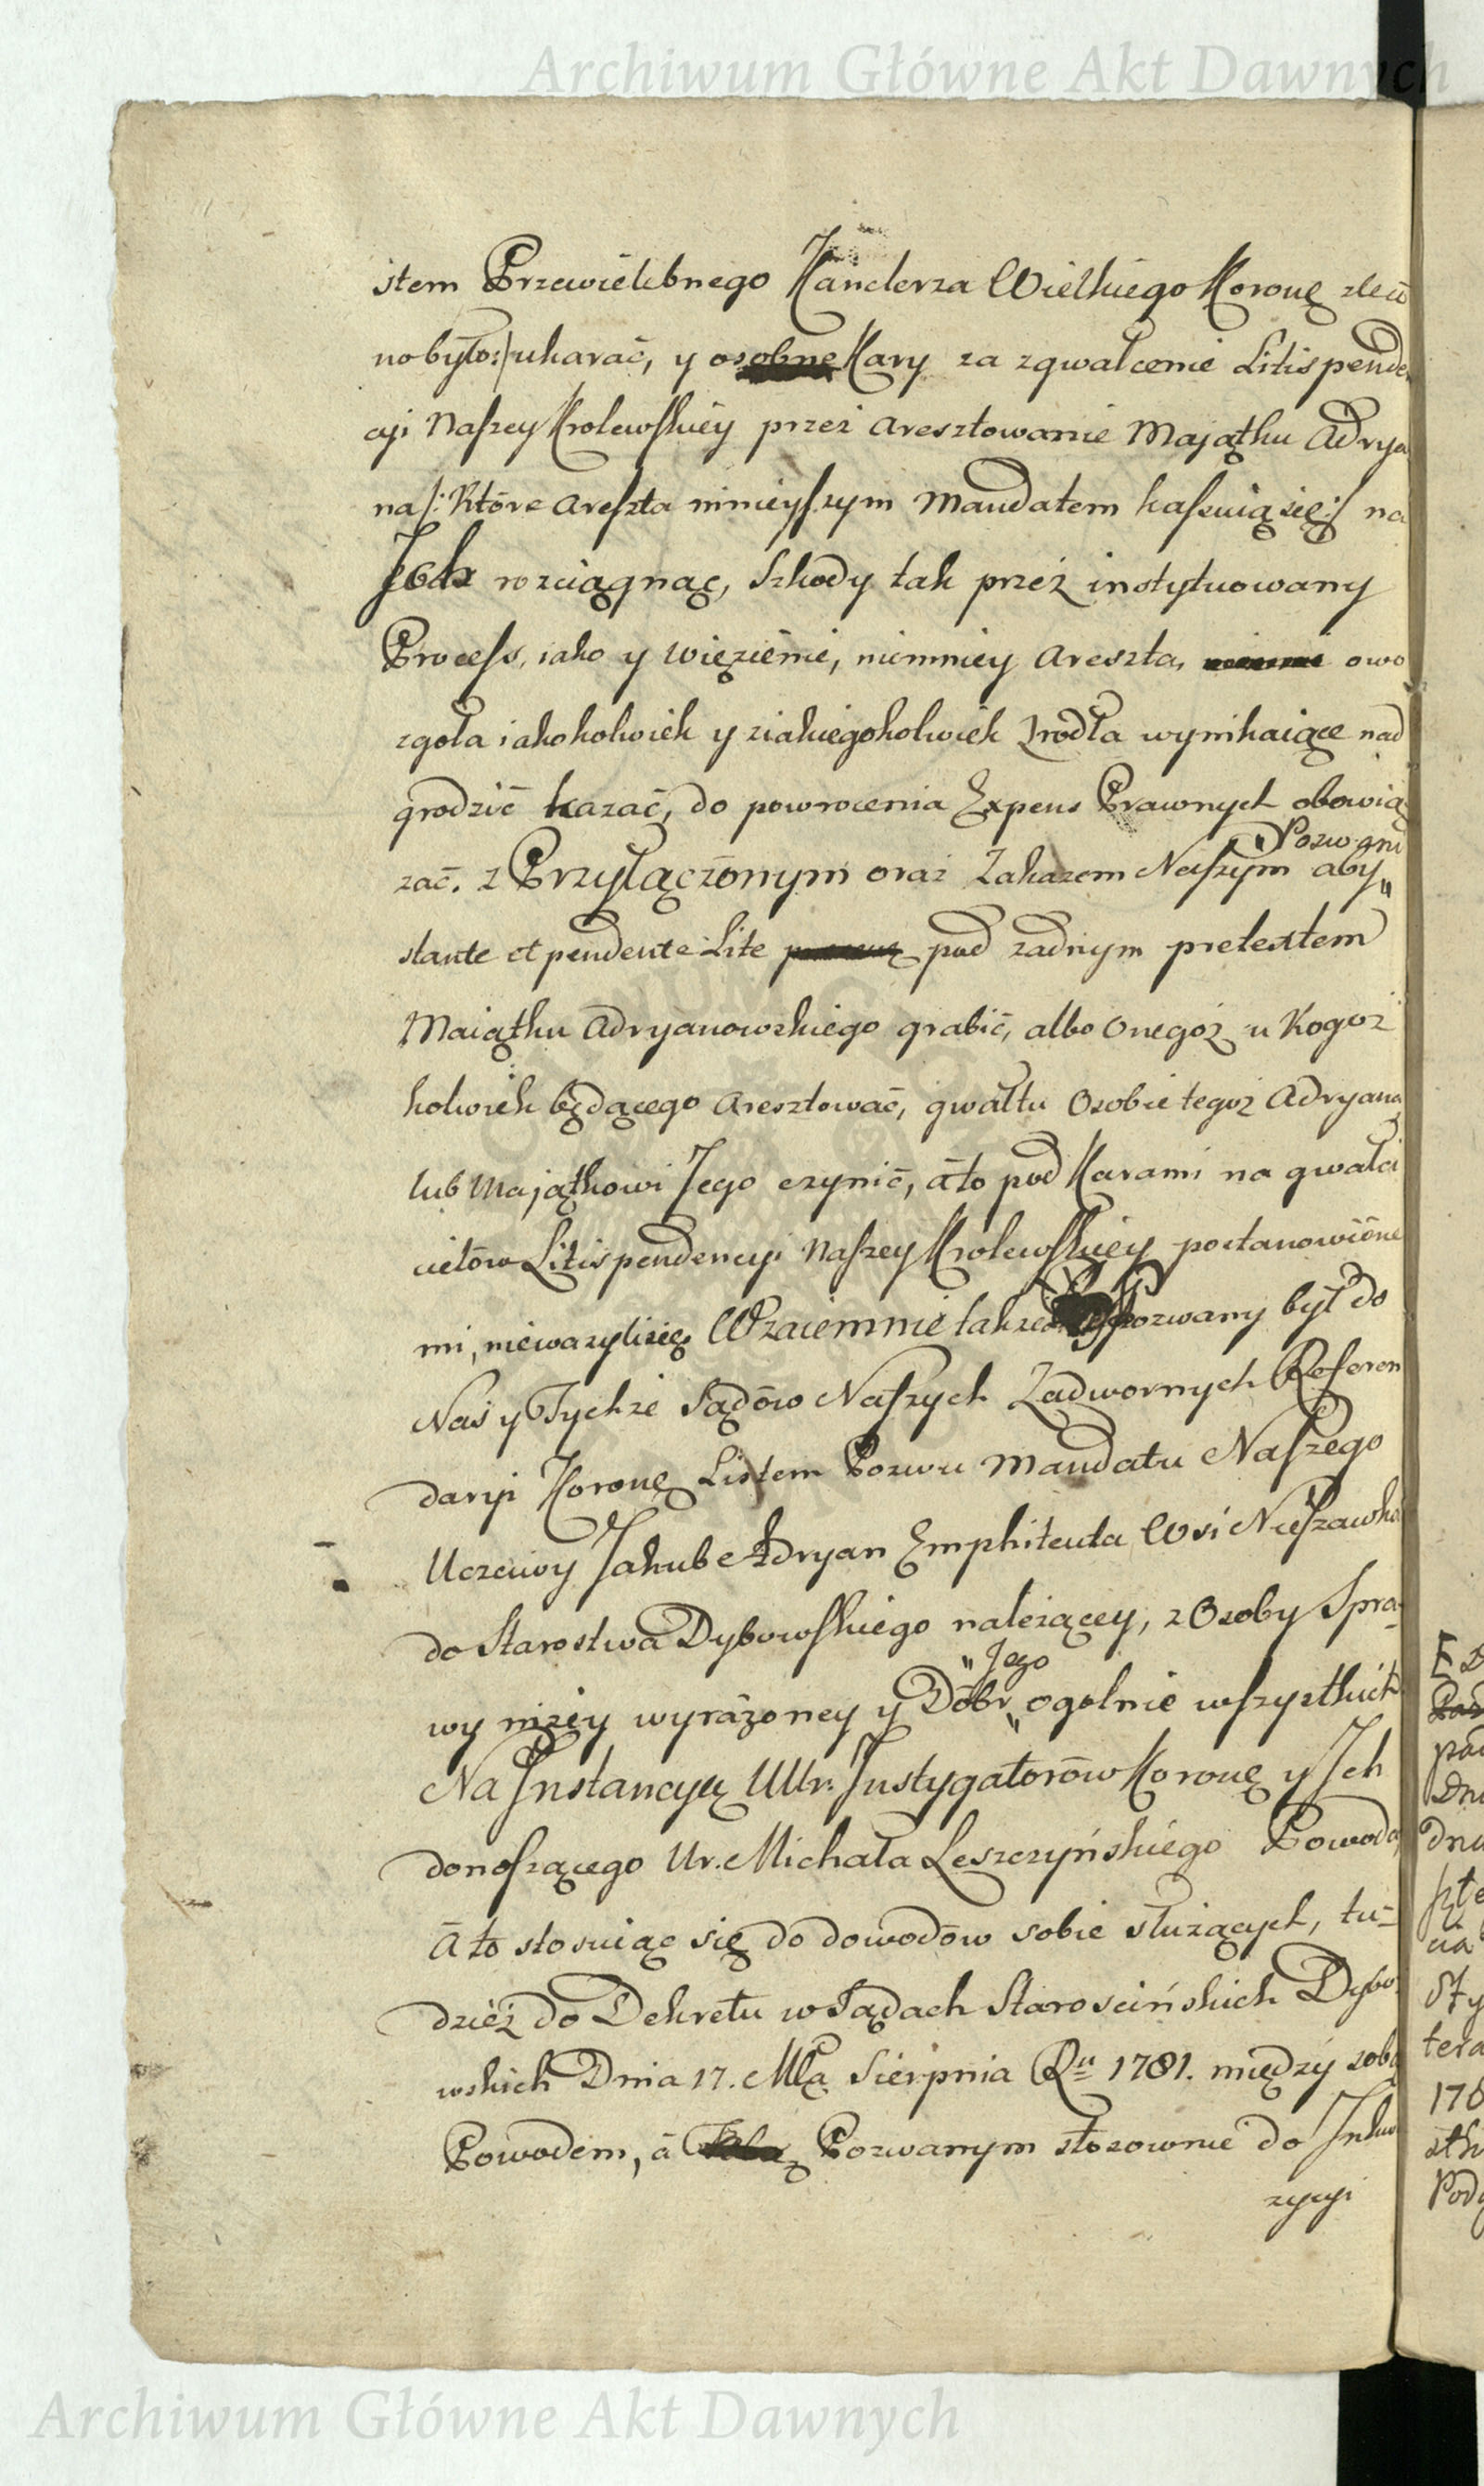 Archiwum Główne Akt Dawnych
stem Przewielebnego Kanclerza Wielkiego Koronę zleco
no było:/ ukarać, y osobne Kary za zgwałcenie Litispende
cyi Naszey Krolewskiey przez aresztowanie Majątku Adrya
na /: Które areszta ninieyszym Mandatem kassuią się :/ na
Jchże rozciągnąć, Szkody tak przez instytuowany
Process, iako y więzienie, niemniey Areszta, owo
zgoła iakokolwiek y ziakiegokolwiek Zrodła wynikaiące nad
grodzić kazać, do powrocenia Expens Prawnych obowią
Pozwani
zać. z Przyłączonym oraz Zakazem Naszym aby
stante et pendente Lite pod zadnym pretextem
Maiątku Adryanowskiego grabić, albo onegoż u Kogoż
kolwiek będącego Aresztować, gwałtu Osobie tegoż Adryana
lub Majątkowi Jego czynić, a to pod Karami na gwałci
cielow Litispendencyi Naszey Krolewskiey postanowione
mi, nieważylisię. Wzaiemnie także Pozwany był do
Nas y Tychże Sądów Naszych Zadwornych Referen
daryi Koronę Listem Pozwu Mandatu Naszego
Uczciwy Jakub Adryan Emphiteuta Wsi Nieszawka
do Starostwa Dybowskiego należącey, z Osoby Spra-
Jego
wy niżey wyrażoney y Dóbr ogolnie wszystkich
Na Instancyą UUr. Instygatorów Koronę y Jch
donoszącego Ur. Michała Leszczyńskiego Powoda
A to stosuiąc się do dowodów sobie służących, tu-
dzież do Dekretu w Sądach Starościńskich Dybo-
wskich Dnia 17. Mca Sierpnia Ru 1781. między sobą
Powodem, a Pozwanym stosownie do Inkwi
zycyi
Archiwum Główne Akt Dawnych